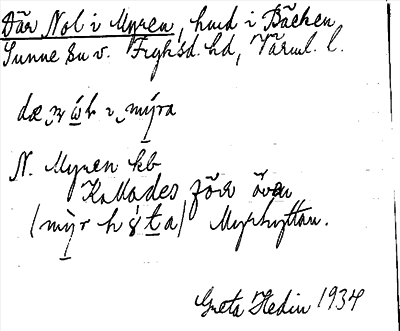 Där Nol i Myren, hmd i Bäcken
Sunne sn v. Fryksd. hd, Värml. l.
N. Myren kb
Kallades förr även
(mỳr h y̌t a) Myrhyttan.
Greta Hedin 1934